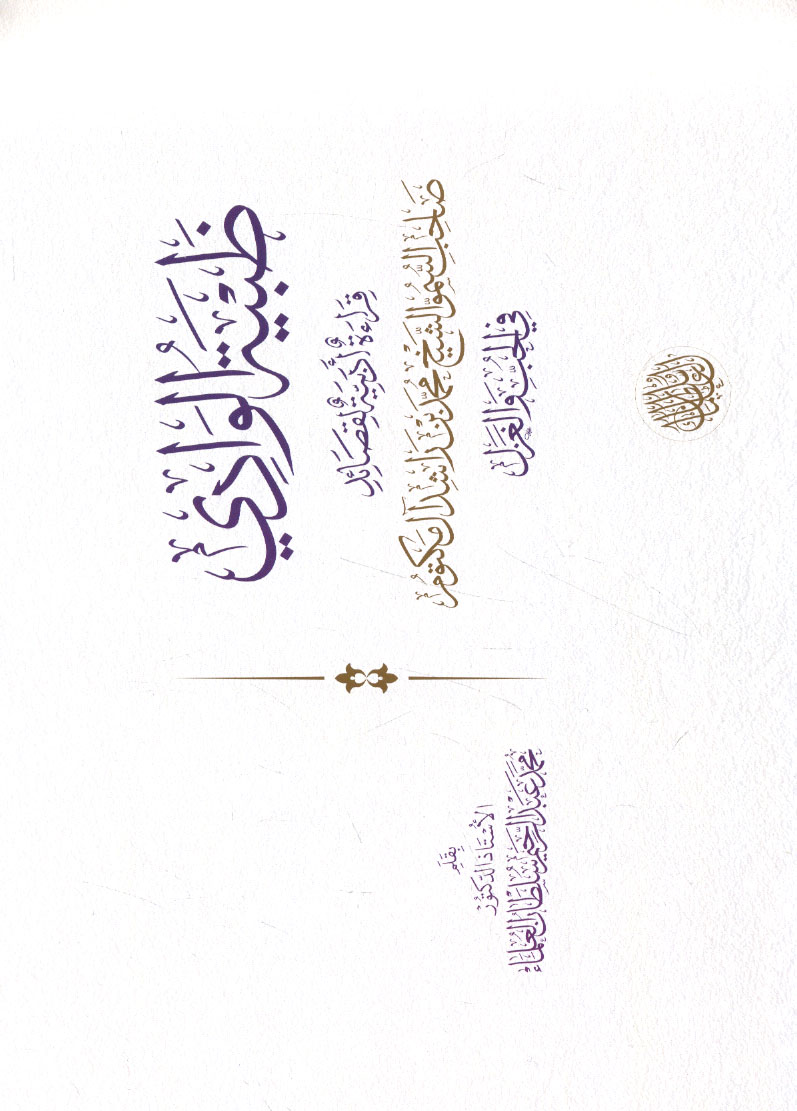 ظَبْيَةُ الوَادِي
قِرَاءَةٌ أَدَبِيَّةٌ لِقَصَائِدِ
صَاحِبِ السُّمُوِّ الشَّيْخِ مُحَمَّد بْن رَاشِد آل مَكْتُومٍ
فِي الحُبِّ وَالغَزَلِ
بِقَلَمِ
الأُسْتَاذِ الدُّكْتُورِ
مُحَمَّد عَبْدُ الرَّحِيم سُلْطَان العُلَمَاءِ